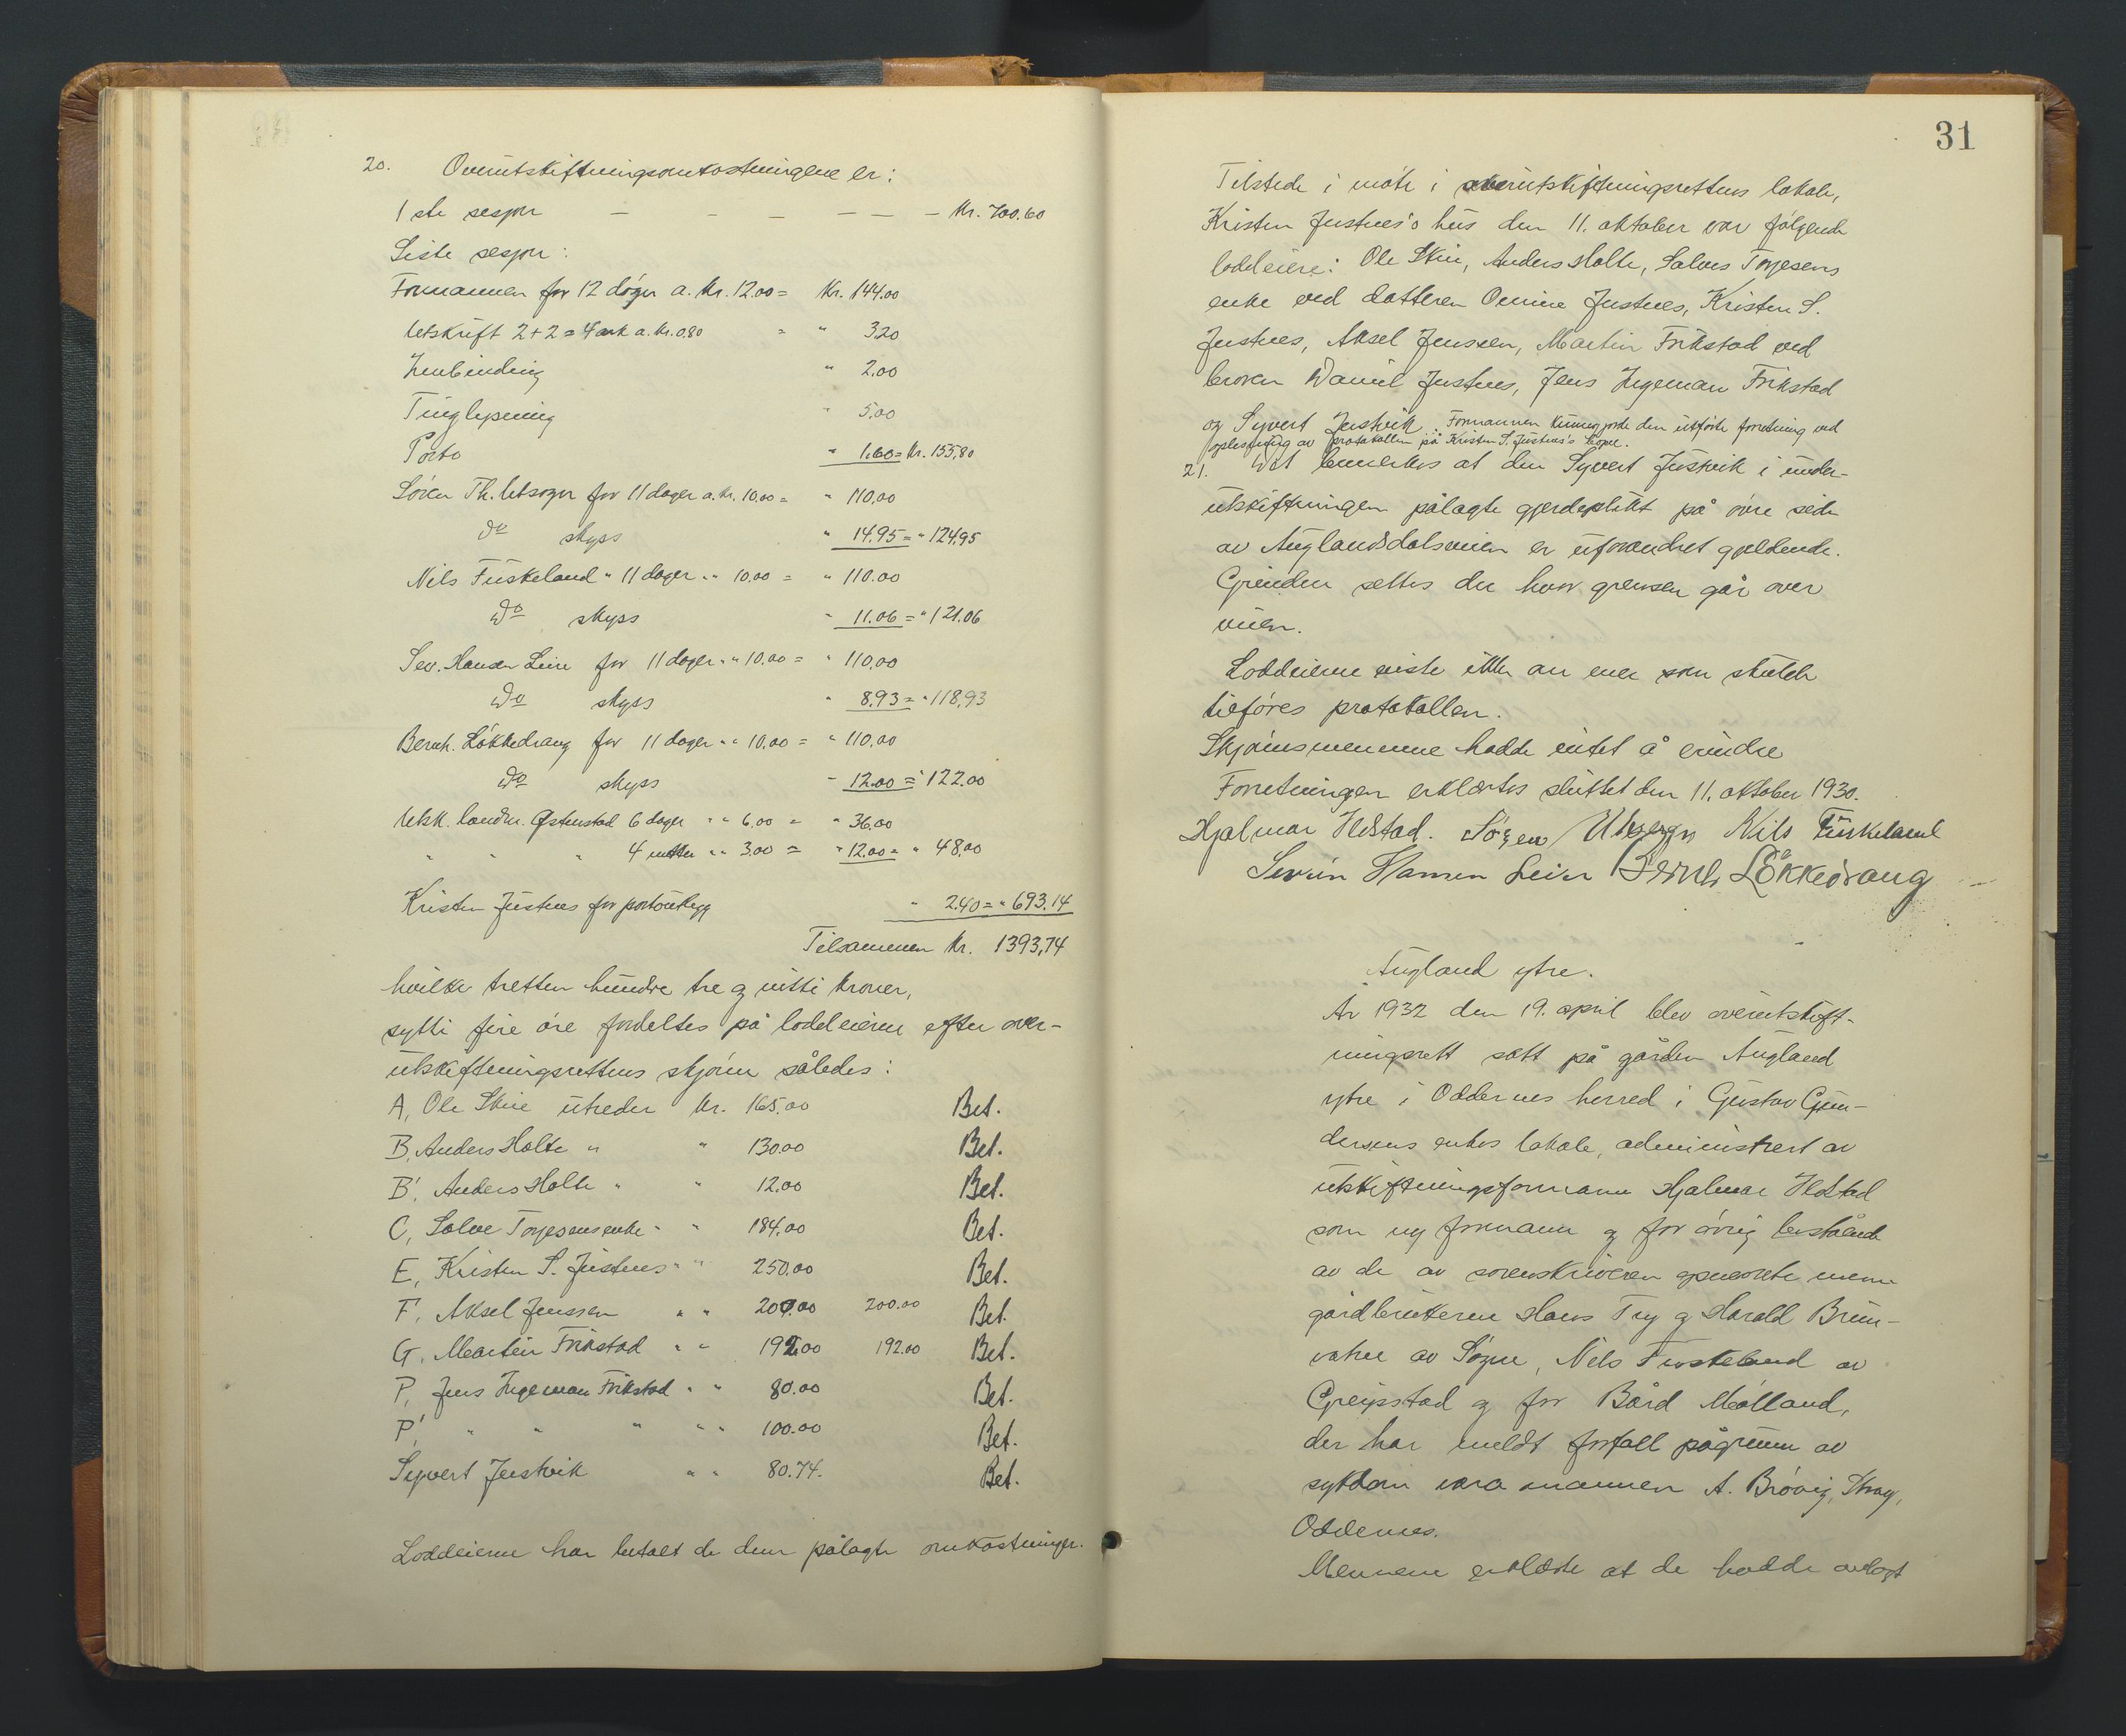 20. Overutskiftningsomkostningene er:
1ste sesjon — — — — — — Kr. 700.60
Siste sesjon:
Formannen for 12 døgn a. kr. 12.00 = Kr. 144.00
Utskrift 2+2 = 4 ark a. kr. 0.80 = " 3.20
Innbinding " 2.00
Tinglysning " 5.00
Porto " 1.60 = Kr. 155,80
Søren Th. Udsøgn for 11 dager a. kr. 10.00 = " 110,00
do skyss " 14.95 = " 124.95
Nils Fuskeland " 11 dager " " 10.00 = " 110.00
do skyss " 11.06 = " 121.06
Sev. Hansen Leire for 11 dager " " 10.00 = " 110,00
do skyss " 8.93 = " 118,93
Bernh. Løkkedrang for 11 dager " " 10,00 = " 110,00
do skyss " 12.00 = " 122.00
Utsk. landm. Østenstad 6 dager " " 6.00 = " 36.00
" " " 4 netter " " 3.00 = " 12.00 = " 48,00
Kristen Justnes for portoutlegg " 2.40 = " 693.14
Tilsammen kr. 1393,74
hvilke tretten hundre tre og nitti kroner,
sytti fire øre fordeltes på loddeierne efter over-
utskiftningsrettens skjønn således:
A, Ole Skie utreder kr. 165.00 Bet.
B, Anders Holte " " 130.00 Bet.
B', Anders Holte " " 12.00 Bet.
C, Salve Torjesens enke " " 184.00 Bet.
E, Kristen S. Justnes " " 250.00 Bet.
F, Aksel Jenssen " " 200.00 200.00 Bet.
G, Martin Frikstad " " 192.00 192.00 Bet.
P, Jens Ingeman Frikstad " " 80.00 Bet.
P', " " " " " 100.00 Bet.
Syvert Justvik " " 80.74. Bet.
Loddeierne har betalt de dem pålagte omkostninger.
31
Tilstede i møte i overutskiftningsrettens lokale,
Kristen Justnes's hus den 11. oktober var følgende
loddeiere: Ole Skie, Anders Holte, Salves Torjesens
enke ved datteren Omine Justnes, Kristen S.
Justnes, Aksel Jenssen, Martin Frikstad ved
broren Daniel Justnes, Jens Ingeman Frikstad
og Syvert Justvik. Formannen kunngjorde den utførte forretning ved
oplesning av protokollen på Kristen S. Justnes's
21. Det bemerkes at den Syvert Justvik i under-
utskiftningen pålagte gjerdeplikt på øvre side
av Auglandsdalsveien er uforandret gjeldende.
Grinden settes der hvor grensen går over
veien.
Loddeierne viste ikke av mer som skulde
tilføres protokollen.
Skjønsmennene hadde intet å erindre
Forretningen erklærtes sluttet den 11. oktober 1930.
Hjalmar Ildstad. Søren Udsøgn Nils Fuskeland
Severin Hansen Leire Bernh Løkkedrang
Augland ytre.
År 1932 den 19. april blev overutskift-
ningsrett satt på gården Augland
ytre i Oddernes herred i Gustav Gun-
dersens enkes lokale, administrert av
utskiftningsformann Hjalmar Ildstad
som ny formann og for øvrig bestående
av de av sorenskriveren opnevnte menn
gårdbrukerne Hans Try og Harald Brun-
vatne av Søgne, Nils Fuskeland av
Greipstad og for Bård Mølland,
der har meldt forfall pågrunn av
sykdom vara mannen A. Brøvig, Stray,
Oddernes.
Mennene erklærte at de hadde avlagt